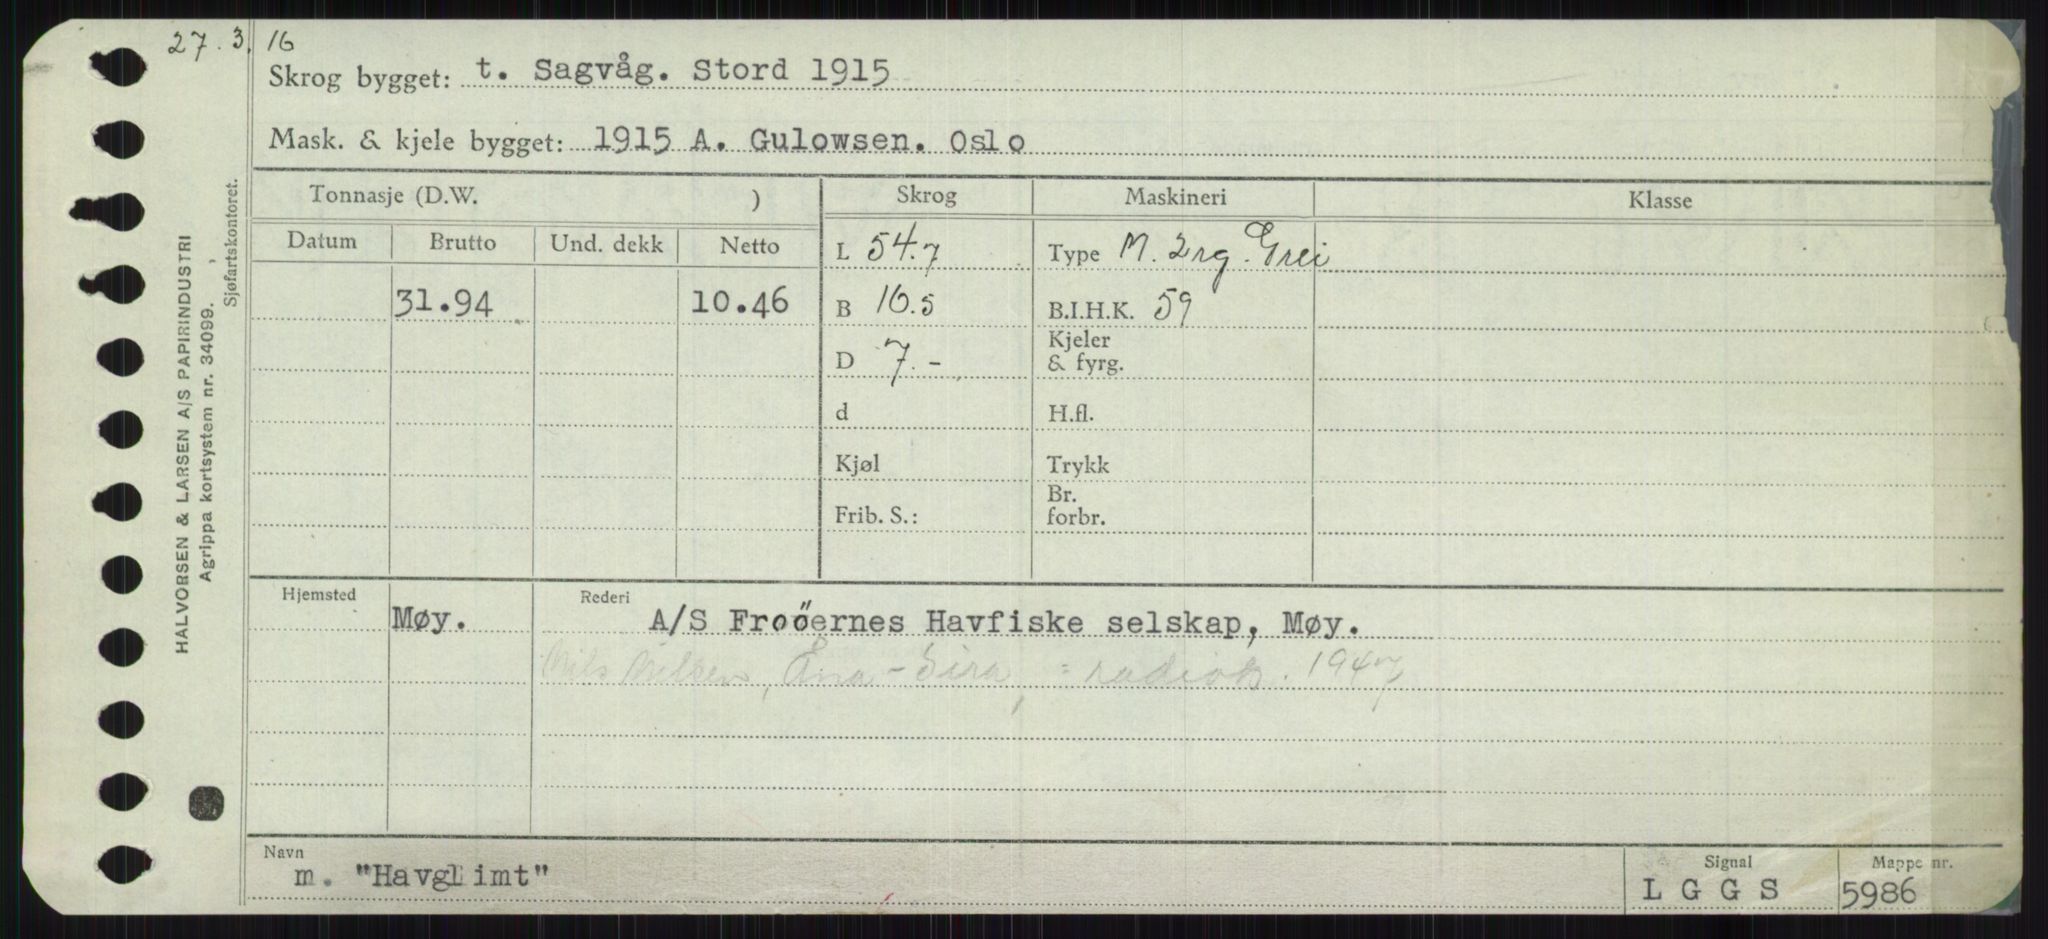 27.3.16
Skrog bygget: t. Sagvåg. Stord 1915
Mask. & kjele bygget: 1915 A. Gulowsen. Oslo
HALVORSEN & LARSEN A/S PAPIRINDUSTRI
Agrippa kortsystem nr. 34099.
Sjøfartskontoret.
Tonnasje (D.W. ) Skrog Maskineri Klasse
Datum Brutto Und. dekk Netto L 54.7 Type M. 2rg. Grei
31.94 10.46 B 16.5 B.I.H.K. 59
D 7.- Kjeler & fyrg.
d H.fl.
Kjøl Trykk
Frib. S.: Br. forbr.
Hjemsted Rederi
Møy. A/S Froöernes Havfiske selskap, Møy.
Nils Nilsen, Ana-Sira, : radiok. 1947
Navn Signal Mappe nr.
m. "Havglimt" L G G S 5986